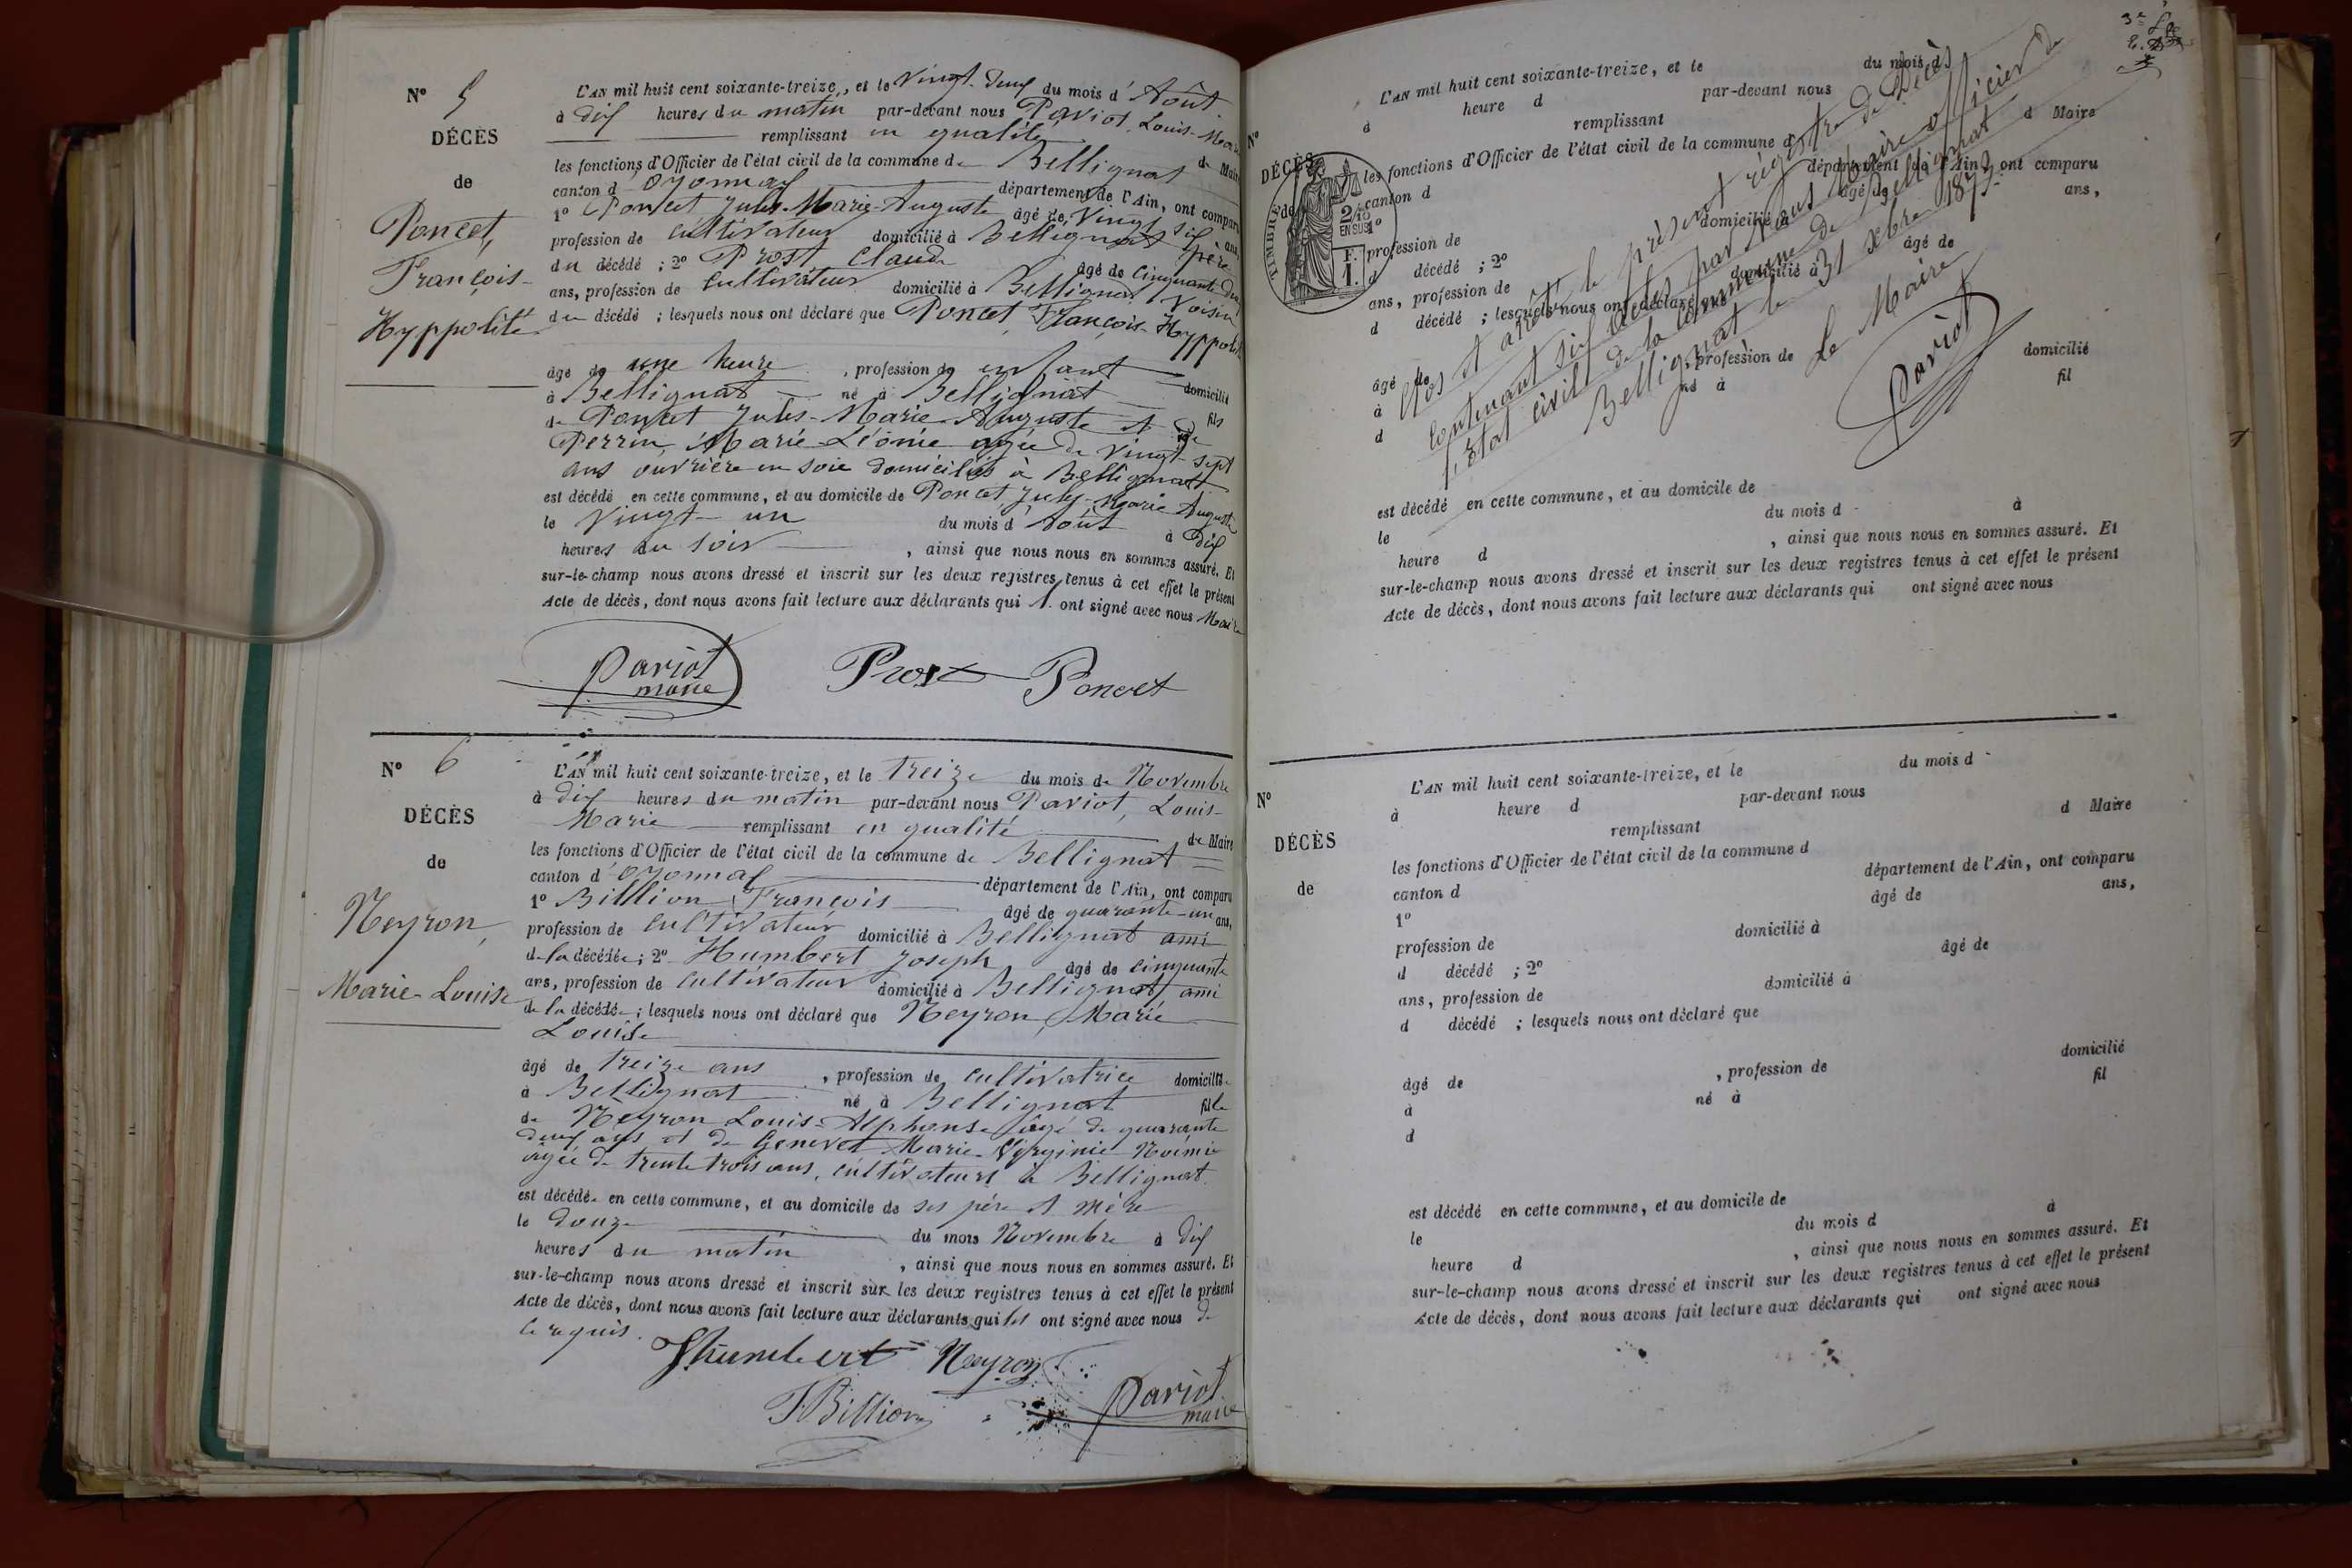 N° 5
DÉCÈS
de
Poncet,
François-
Hyppolite
L'AN mil huit cent soixante-treize, et le Vingt-deux du mois d'Août
à dix heures du matin par-devant nous Pariot, Louis-Marie
remplissant en qualité de Maire
les fonctions d'Officier de l'état civil de la commune de Bellignat
canton d'Oyonnax département de l'Ain, ont comparu
1° Poncet Jules-Marie-Auguste âgé de Vingt six ans,
profession de cultivateur domicilié à Bellignat père
du décédé ; 2° Prost Claude âgé de cinquante deux
ans, profession de cultivateur domicilié à Bellignat Voisin
du décédé ; lesquels nous ont déclaré que Poncet, François-Hyppolite
âgé de une heure , profession de enfant domicilié
à Bellignat né à Bellignat fils
de Poncet Jules-Marie-Auguste et de
Perrin, Marie-Léonie agée de Vingt-sept
ans ouvrière en soie domiciliés à Bellignat
est décédé en cette commune, et au domicile de Poncet, Jules-Marie Auguste
le Vingt-un du mois d'Août à dix
heures du soir , ainsi que nous nous en sommes assuré. Et
sur-le-champ nous avons dressé et inscrit sur les deux registres tenus à cet effet le présent
Acte de décès, dont nous avons fait lecture aux déclarants qui ont signé avec nous Maire
Pariot
maire
Prost
Poncet
N° 6
DÉCÈS
de
Neyron,
Marie-Louise
L'AN mil huit cent soixante-treize, et le treize du mois de Novembre
à dix heures du matin par-devant nous Pariot, Louis-
Marie remplissant en qualité de Maire
les fonctions d'Officier de l'état civil de la commune de Bellignat
canton d'Oyonnax département de l'Ain, ont comparu
1° Billion François âgé de quarante-un ans,
profession de cultivateur domicilié à Bellignat ami
de la décédée ; 2° Humbert Joseph âgé de cinquante
ans, profession de cultivateur domicilié à Bellignat, ami
de la décédée ; lesquels nous ont déclaré que Neyron, Marie
Louise
âgé de treize ans , profession de cultivatrice domiciliée
à Bellignat né à Bellignat fille
de Neyron Louis-Alphonse, âgé de quarante
deux ans et de Genevet Marie-Virginie Noémie
agée de trente trois ans, cultivateurs à Bellignat.
est décédée en cette commune, et au domicile de ses père et mère
le douze du mois Novembre à dix
heures du matin , ainsi que nous nous en sommes assuré. Et
sur-le-champ nous avons dressé et inscrit sur les deux registres tenus à cet effet le présent
Acte de décès, dont nous avons fait lecture aux déclarants qui ont signé avec nous de
ce requis.
Humbert
Neyron
FBillion
Pariot
maire
N°
DÉCÈS
de
TIMBRE
2/10
EN SUS
F.
1.
L'AN mil huit cent soixante-treize, et le du mois d
à heure d par-devant nous
remplissant d Maire
les fonctions d'Officier de l'état civil de la commune d
canton d département de l'Ain, ont comparu
1° âgé de ans,
profession de domicilié à
d décédé ; 2° âgé de
ans, profession de domicilié à
d décédé ; lesquels nous ont déclaré que
âgé de , profession de domicilié
à né à fil
d
Clos et arrêté le présent régistre de Décès
contenant six actes par nous Maire officier de
l'État civil de la commune de Bellignat
Bellignat le 31 xbre 1873
Le Maire
Pariot
est décédé en cette commune, et au domicile de
le du mois d à
heure d , ainsi que nous nous en sommes assuré. Et
sur-le-champ nous avons dressé et inscrit sur les deux registres tenus à cet effet le présent
Acte de décès, dont nous avons fait lecture aux déclarants qui ont signé avec nous
N°
DÉCÈS
de
L'AN mil huit cent soixante-treize, et le du mois d
à heure d par-devant nous
remplissant d Maire
les fonctions d'Officier de l'état civil de la commune d
canton d département de l'Ain, ont comparu
1° âgé de ans,
profession de domicilié à
d décédé ; 2° âgé de
ans, profession de domicilié à
d décédé ; lesquels nous ont déclaré que
âgé de , profession de domicilié
à né à fil
d
est décédé en cette commune, et au domicile de
le du mois d à
heure d , ainsi que nous nous en sommes assuré. Et
sur-le-champ nous avons dressé et inscrit sur les deux registres tenus à cet effet le présent
Acte de décès, dont nous avons fait lecture aux déclarants qui ont signé avec nous